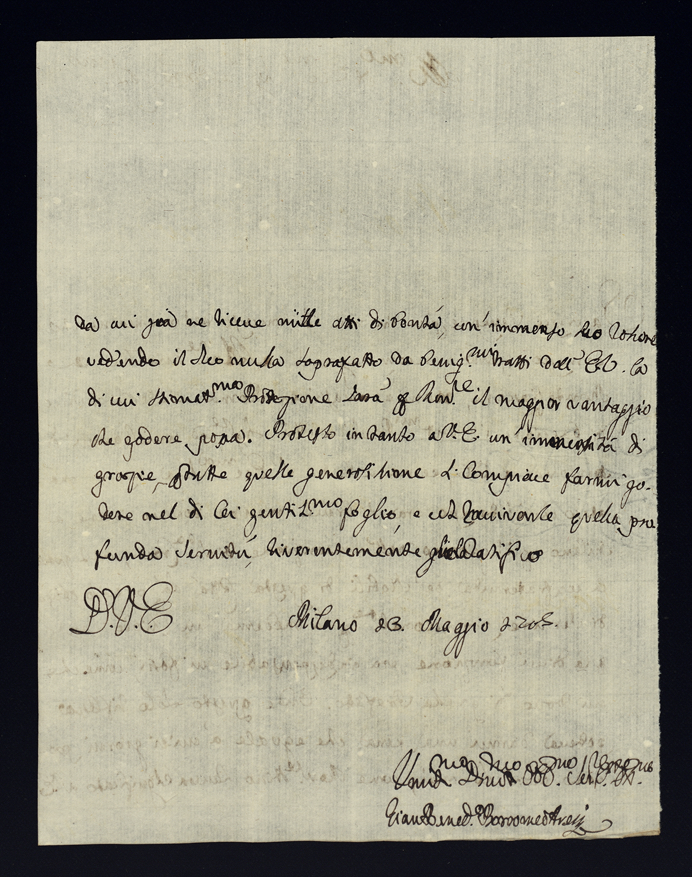 da cui già ne riceve mille atti di bontà, con immenso suo
vedendo il suo nulla soprafatto da benig.mi tratti dall' E.V. la
di cui stimat.ma Protezione sarà il maggior vantaggio
che godere possa. Protesto intanto a V.E. un' immensità di
grazie, tutte quelle generosissime si compiace farmi go-
dere nel di lei gentil.mo foglio, e col quella pro
funda servitù, riverentemente
D.V.E Milano 23. Maggio
Umil.mo Devot.mo Obb.mo Ser.
Gian Bened. Borromeo Arese